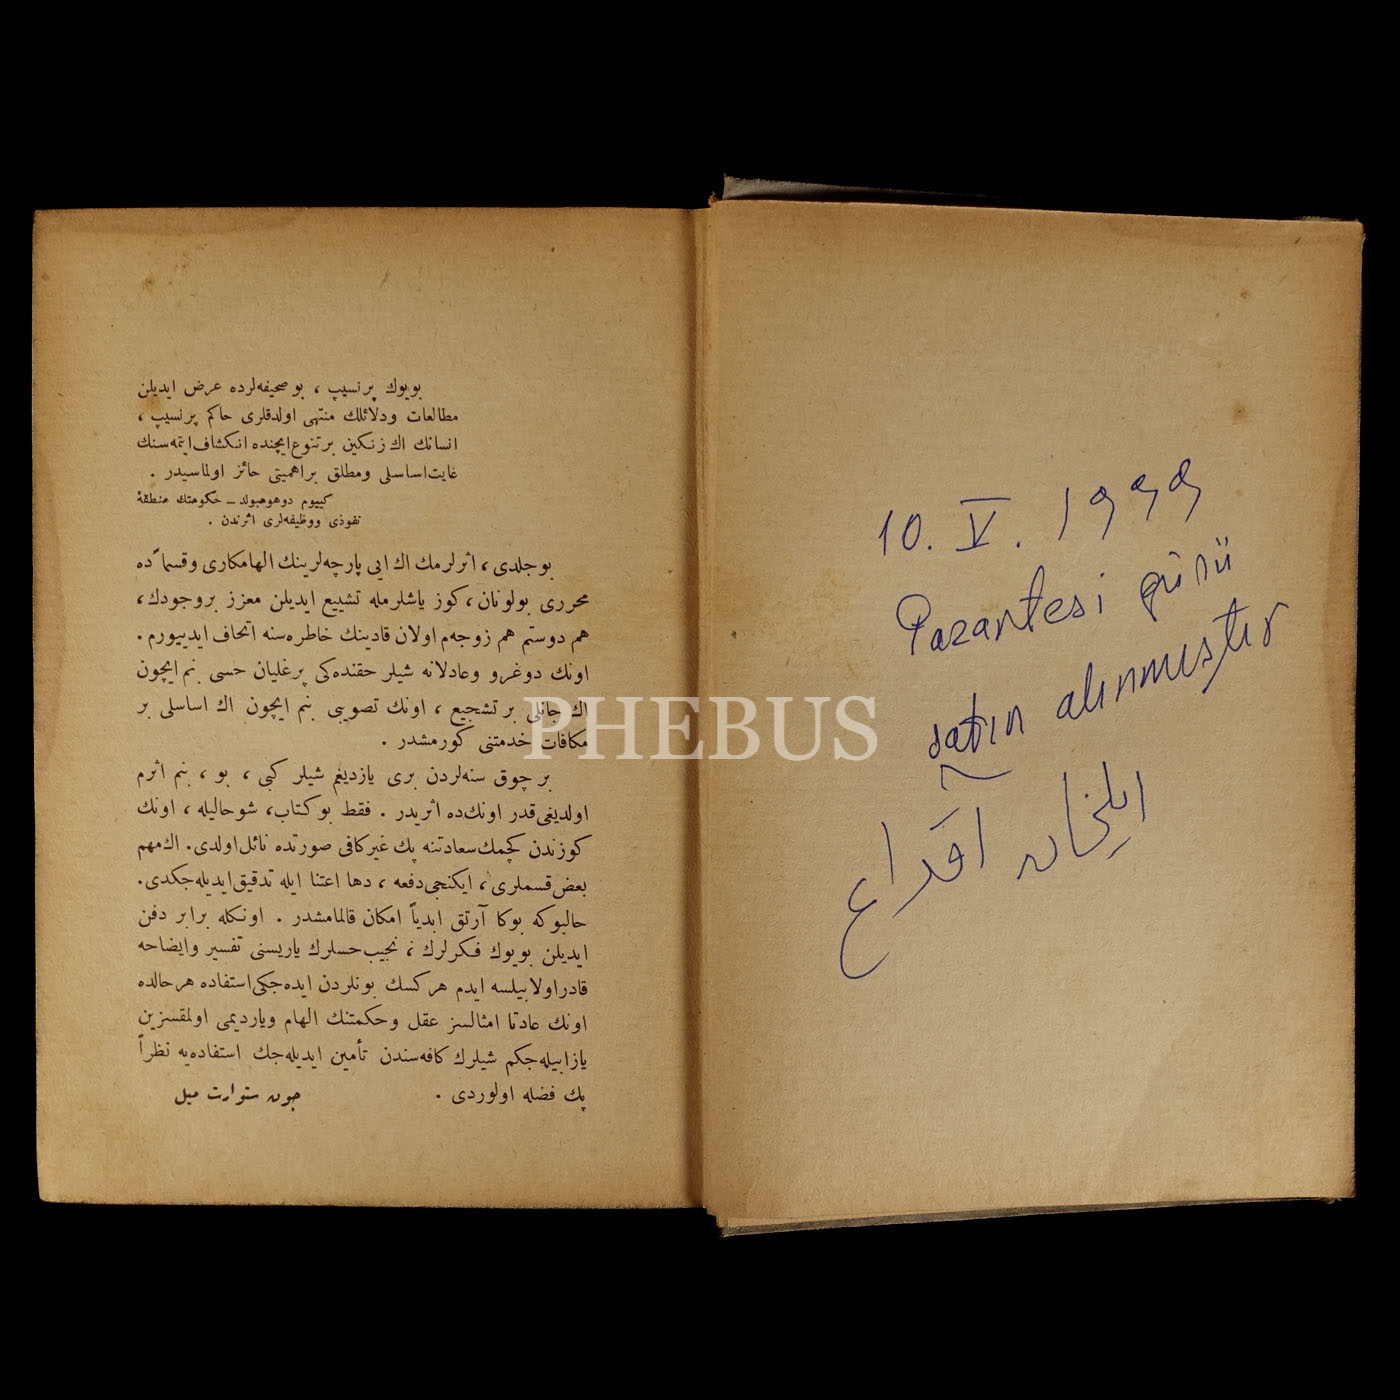 بویوك پرنسیپ ، بو صحیفه‌لرده عرض ایدیلن
مطالعات ودلائلك منتهی اولدقلری حاكم پرنسیپ ،
انسانك اك زنكین بر تنوع ایچنده انكشاف ایتمه‌سنك
غایت اساسلی ومطلق بر اهمیتی حائز اولماسیدر .
كییوم دوهومبولد ــ حكومتك منطقهٔ
نفوذی ووظیفه‌لری اثرندن .
بو جلدی ، اثرلرمك اك ایی پارچه‌لرینك الهامكاری وقسماً ده
محرری بولونان ، كوز یاشلرمله تشییع ایدیلن معزز بر وجودك ،
هم دوستم هم زوجه‌م اولان قادینك خاطره‌سنه اتحاف ایدییورم .
اونك دوغرو وعادلانه شیلر حقنده‌كی پرغلیان حسی بنم ایچون
اك جانلی بر تشجیع ، اونك تصویبی بنم ایچون اك اساسلی بر
مكافات خدمتنی كورمشدر .
بر چوق سنه‌لردن بری یازدیغم شیلر كبی ، بو ، بنم اثرم
اولدیغی قدر اونك‌ده اثریدر . فقط بو كتاب ، شو حالیله ، اونك
كوزندن كچمك سعادتنه پك غیركافی صورتده نائل اولدی . اك مهم
بعض قسملری ، ایكنجی دفعه ، دها اعتنا ایله تدقیق ایدیله‌جكدی .
حالبوكه بوكا آرتق ابدیاً امكان قالمامشدر . اونكله برابر دفن
ایدیلن بویوك فكرلرك ، نجیب حسلرك یاریسنی تفسیر وایضاحه
قادر اولابیلسه ایدم هر كسك بونلردن ایده‌جكی استفاده هر حالده
اونك عادتا امثالسز عقل وحكمتنك الهام ویاردیمی اولمقسزین
یازابیله‌جكم شیلرك كافه‌سندن تأمین ایدیله‌جك استفاده‌یه نظراً
پك فضله اولوردی .
جون ستوارت میل
10. V. 1999
Pazartesi günü
satın alınmıştır
ایلخان آقداغ
PHEBUS